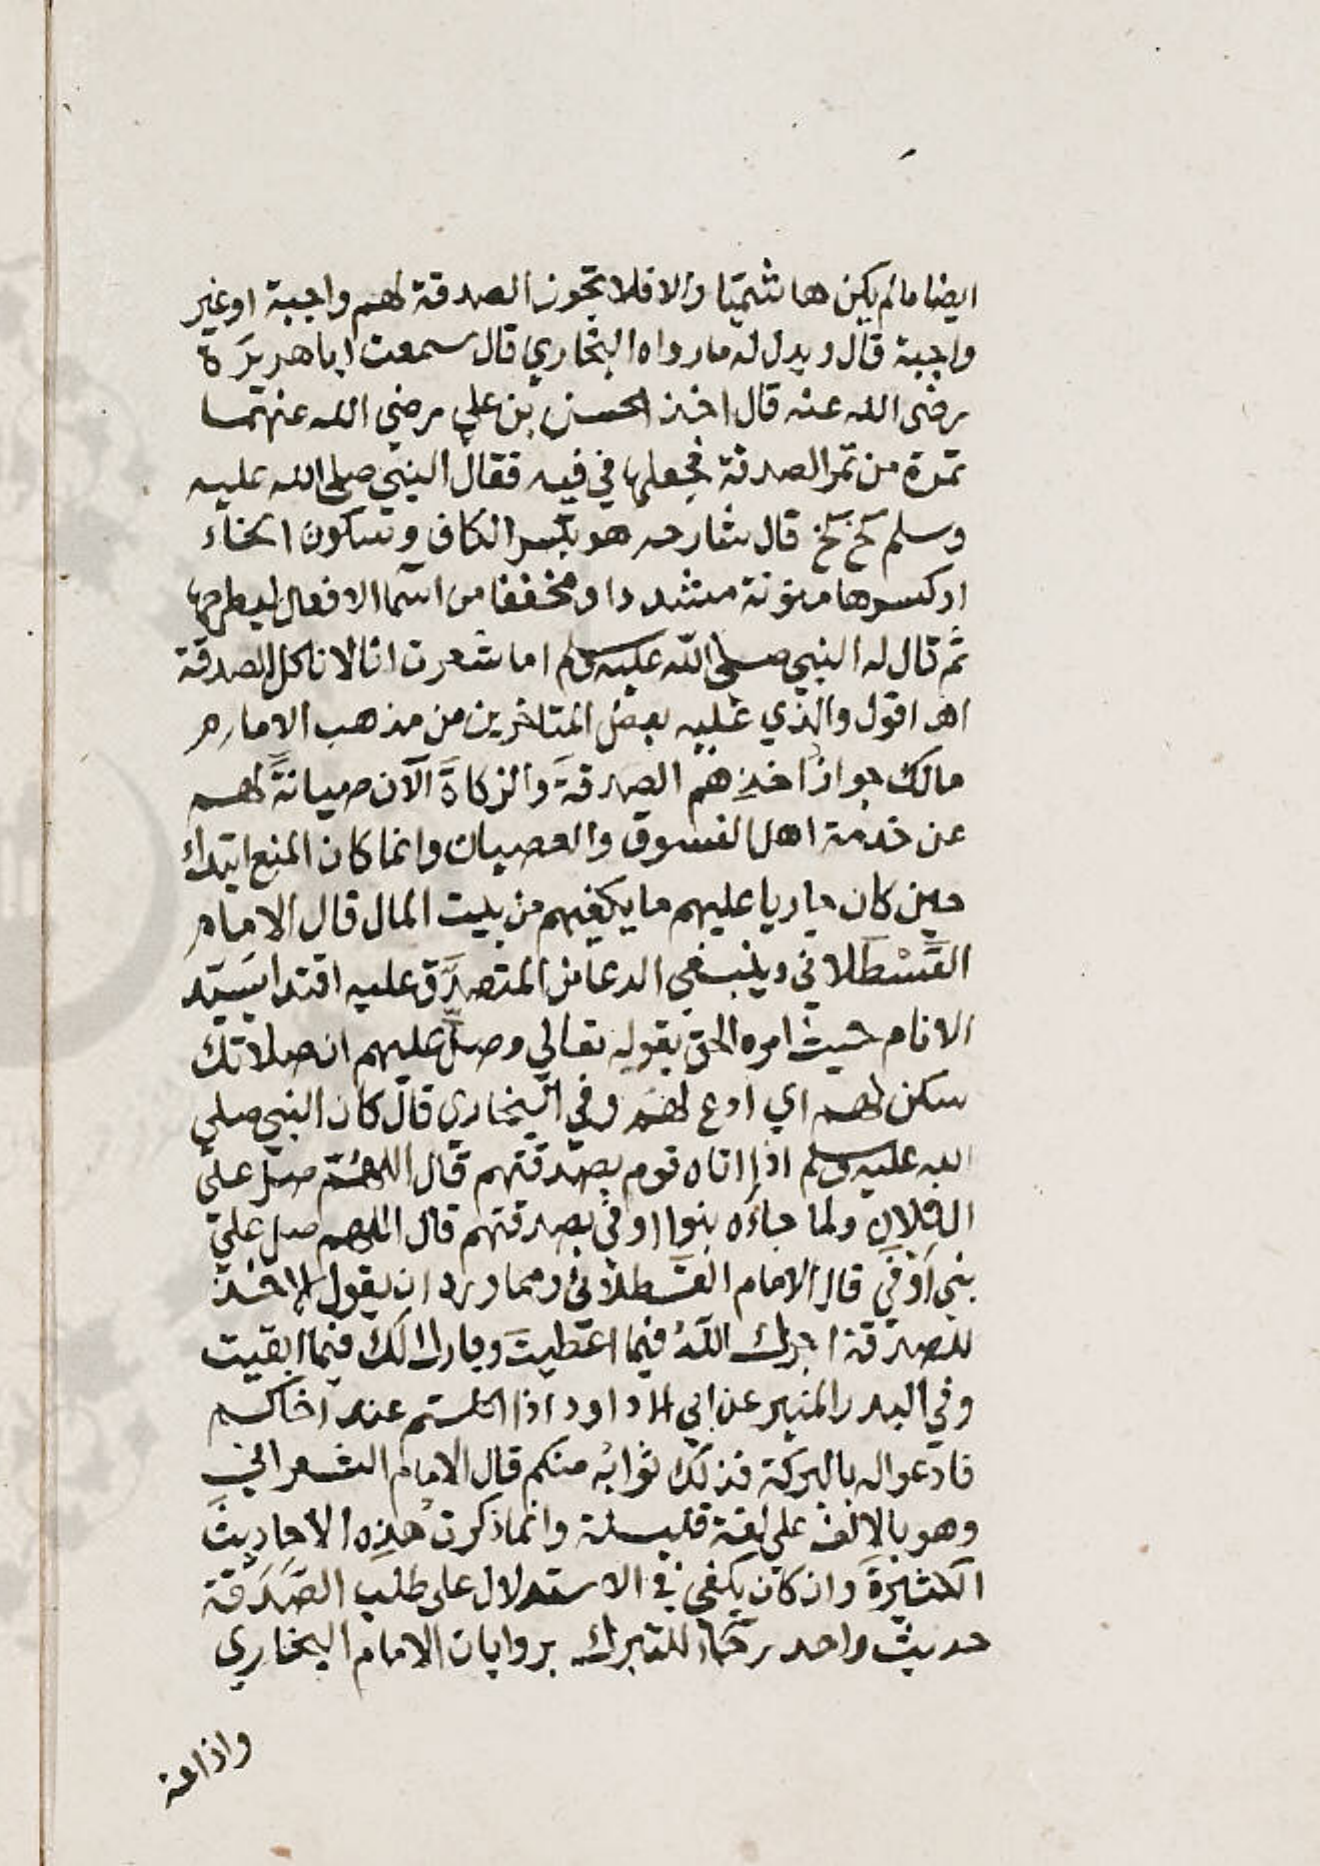 ايضا ما لم يكن هاشميّا والا فلا تجوز الصدقة لهم واجبة او غير
واجبة قال ويدل له ما رواه البخاري قال سمعت ابا هريرَة
رضى الله عنه قال اخذ الحسن بن علي رضي الله عنهما
تمرة من تمر الصدقة فجعلها في فيه فقال النبي صلى الله عليه
وسلم كخ كخ قال شارحه هو بكسر الكاف وسكون الخاء
او كسرها منونة مشددا او مخففا من اسما الافعال ليطرحها
ثم قال له النبي صلى الله عليه وسلم اما شعرت انا لا ناكل الصدقة
اهـ اقول والذي عليه بعض المتاخرين من مذهب الامام
مالك جواز اخذِهم الصدقةَ والزكاةَ الآن صيانةً لهم
عن خدمة اهل الفسوق والعصيان وانما كان المنع ابتداء
حين كان جاريا عليهم ما يكفيهم من بيت المال قال الامام
القَسْطَلاني وينبغي الدعا من المتصدَّق عليه اقتدا بسيّد
الانام حيث امره الحق بقوله تعالي وصلّ عليهم ان صلاتك
سكن لهم اي ادع لهم وفي البخاري قال كان النبي صلي
الله عليه وسلم اذا اتاه قوم بصدقتهم قال اللهُمّ صلّ علىٰ
ال فلان ولما جاءه بنوا اوفى بصدقتهم قال اللهم صل علي
بني اَوْفي قال الامام القسطلاني ومما ورد ان يقول الاخذ
للصدقة اجرك اللهُ فيما اعطيتَ وبارك لك فيما ابقيت
وفي البدر المنير عن ابي داود اذا اكلتم عند اخاكم
فادعوا له بالبركة فذلك ثوابُه منكم قال الامام الشعراني
وهو بالالف علي لغة قليلة وانما ذكرتُ هذِه الاحاديثَ
الكثيرَةَ وان كان يكفي في الاستدلال على طلب الصَدَقة
حديث واحد رَجَاءً للتبرك بروايات الامام البخاري
واذاعة